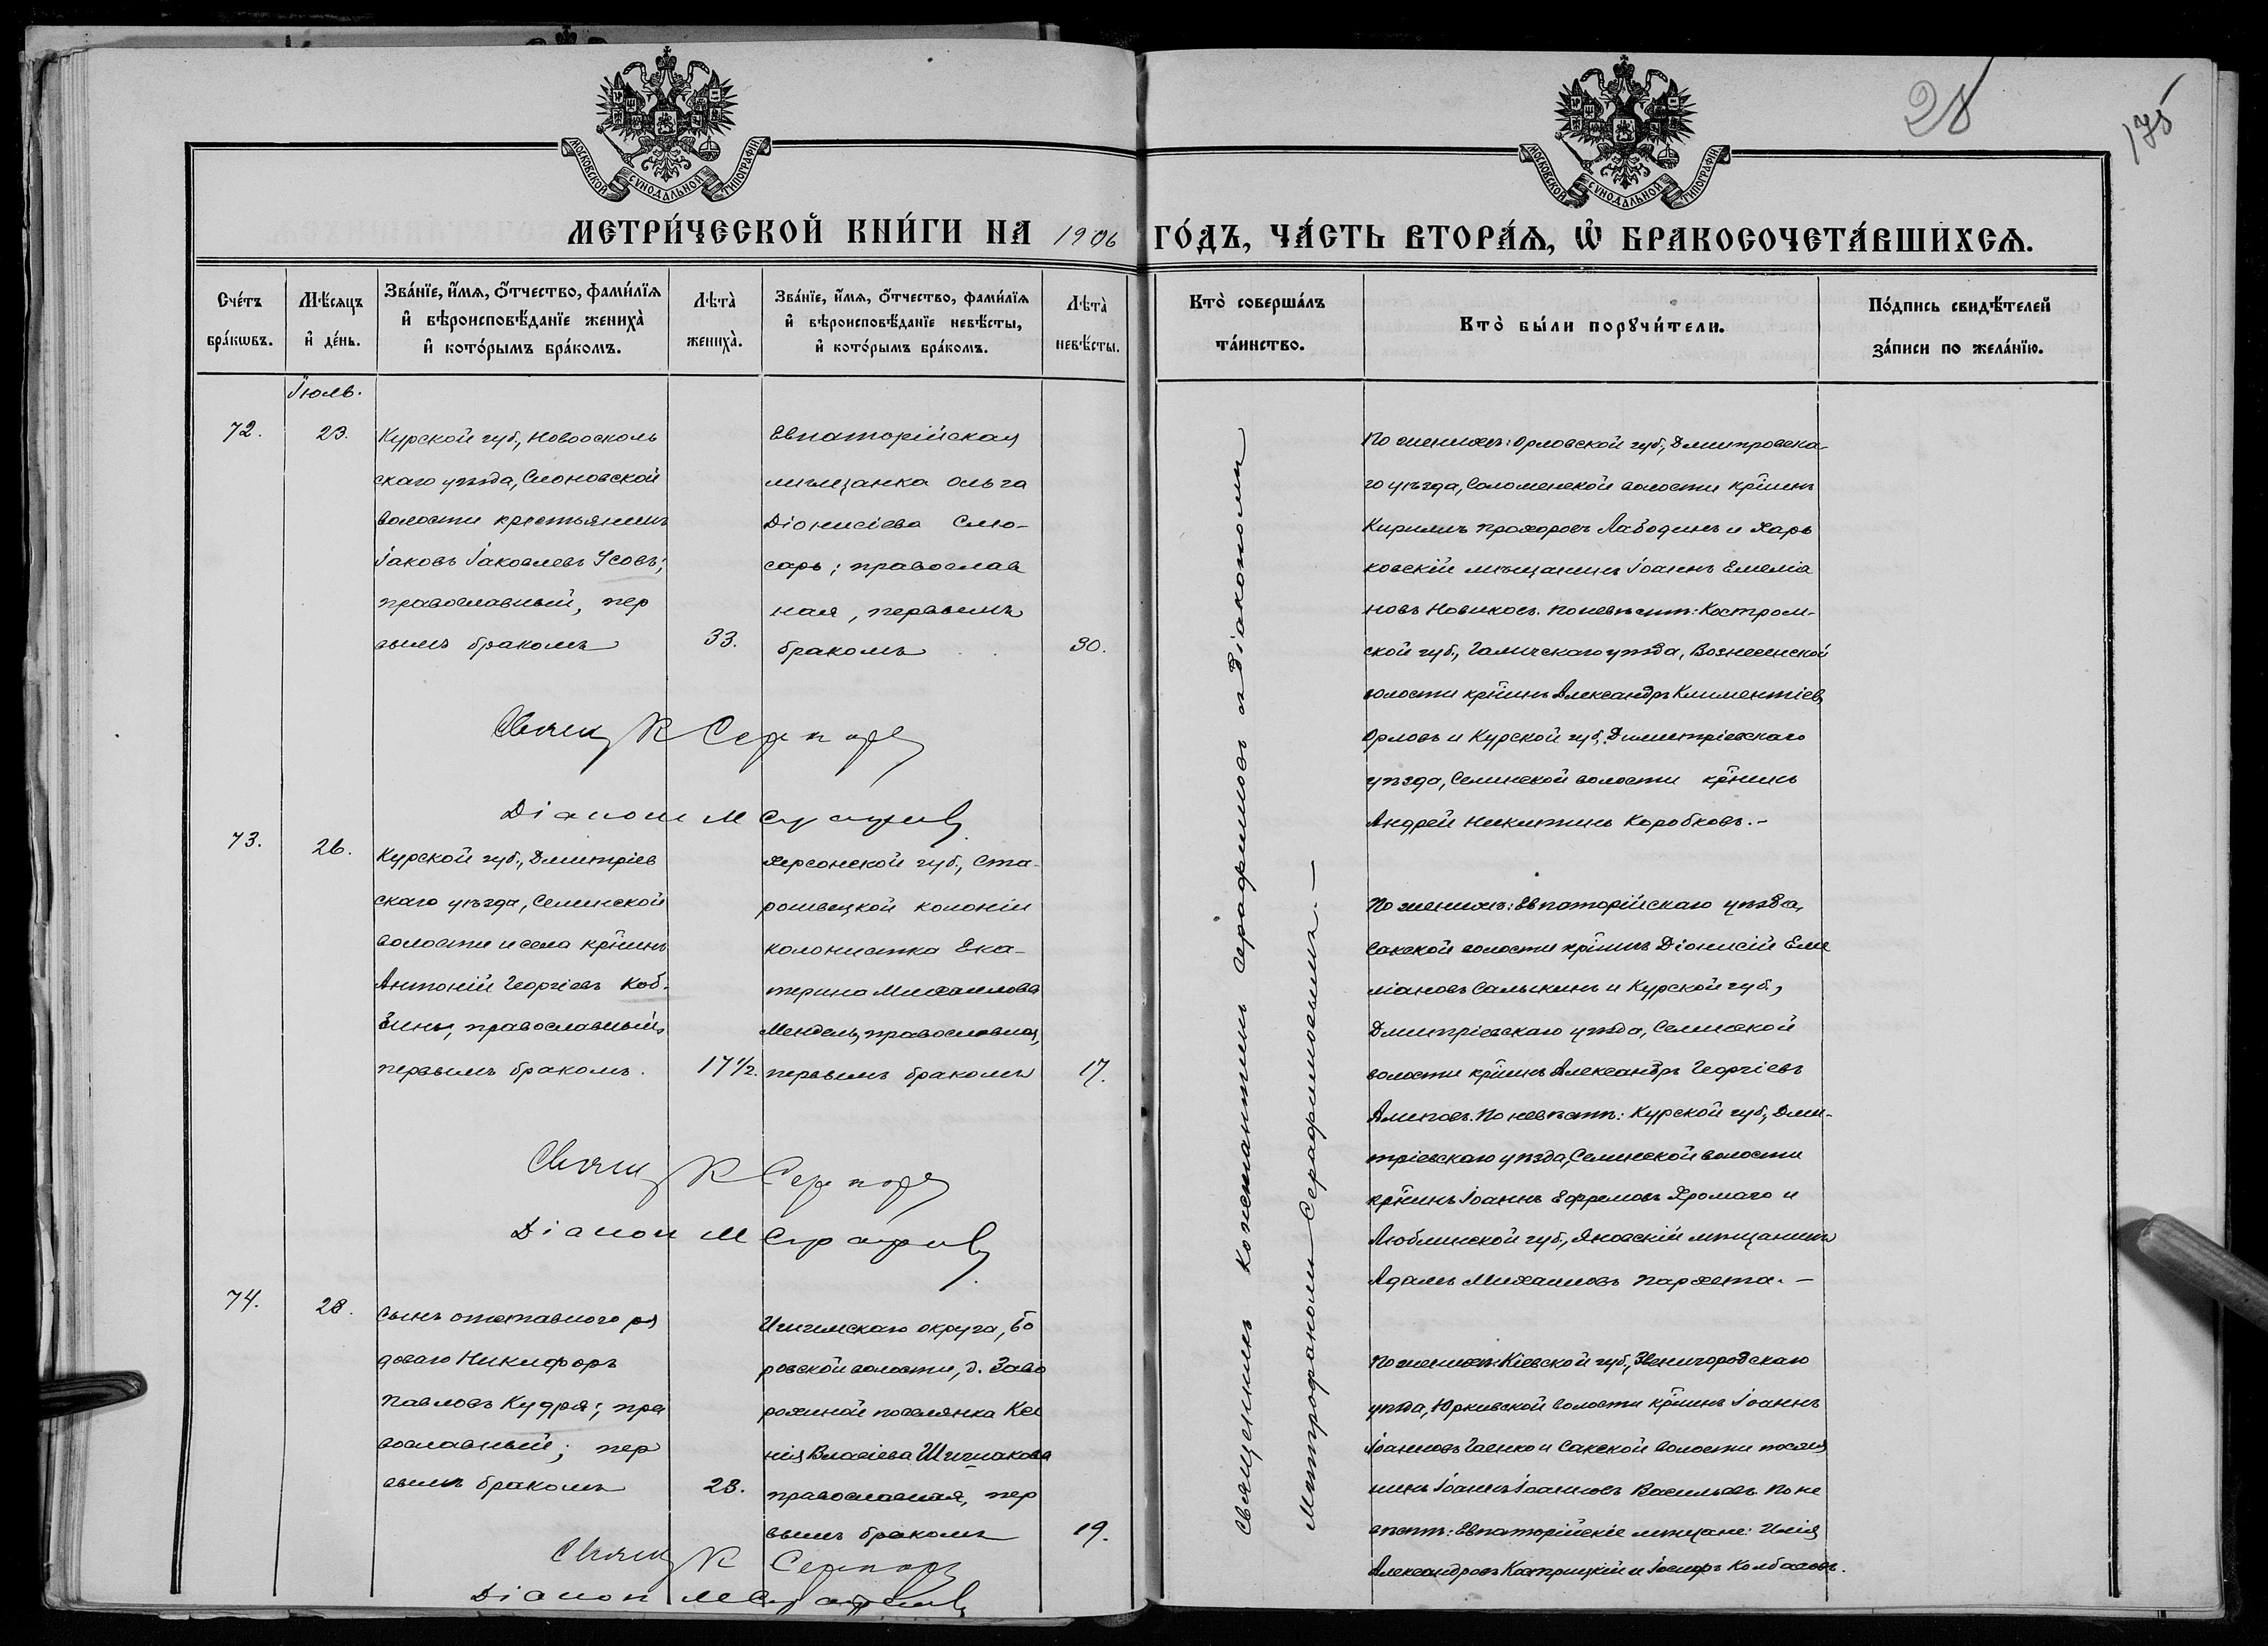 28
175
МОСКОВСКОЙ СѴНОДАЛЬНОЙ ТИПОГРАФІИ
МОСКОВСКОЙ СѴНОДАЛЬНОЙ ТИПОГРАФІИ
МЕТРИ́ЧЕСКОЙ КНИ́ГИ НА 1906 ГО́ДЪ, ЧА́СТЬ ВТОРА́Ѧ, Ѡ БРАКОСОЧЕТА́ВШИХСѦ.
Сче́тъ
бра́кѡвъ.
Мѣ́сѧцъ
и҆ де́нь.
Зва́нїе, и҆́мѧ, ѻ҆́тчество, фами́лїѧ
и҆ вѣроисповѣ́данїе жениха̀
и҆ кото́рымъ бра́комъ.
Лѣта̀
жениха̀.
Зва́нїе, и҆́мѧ, ѻ҆́тчество, фами́лїѧ
и҆ вѣроисповѣ́данїе невѣ́сты,
и҆ кото́рымъ бра́комъ.
Лѣта̀
невѣ́сты.
Кто̀ соверша́лъ
та́инство.
Кто̀ бы́ли порꙋчи́тели.
По́дпись свидѣ́телей
за́писи по жела́нїю.
Іюль.
72.
23.
Курской губ., Новоосколь
скаго уѣзда, Слоновской
волости крестьянинъ
Іаковъ Іаковлевъ Усовъ;
православный, пер
вымъ бракомъ
33.
Евпаторійская
мѣщанка Ольга
Діонисіева Слю-
сарь; православ
ная, первымъ
бракомъ
30.
Священникъ Константинъ Серафимовъ съ діакономъ
Митрофаномъ Серафимовымъ. —
По женихѣ: Орловской губ., Дмитровска-
го уѣзда, Соломенской волости кр̃нинъ
Кириллъ Прохоровъ Лабодинъ и Харь
ковскій мѣщанинъ Іоаннъ Емеліа
новъ Новиковъ. По невѣстѣ: Костром-
ской губ., Галичскаго уѣзда, Вознесенской
волости кр̃нинъ Александръ Климентіевъ
Орловъ и Курской губ. Дмитріевскаго
уѣзда, Селинской волости кр̃нинъ
Андрей Никитинъ Коробковъ. -
Діаконъ М Серафимовъ
73.
26.
Курской губ., Дмитріев
скаго уѣзда, Селинской
волости и села кр̃нинъ
Антоній Георгіевъ Коб-
зинъ, православный,
первымъ бракомъ.
17 ½.
Херсонской губ., Ста-
рошвецкой колоніи
колонистка Ека-
терина Михаилова
Мендель, православная,
первымъ бракомъ
17.
По женихѣ: Евпаторійскаго уѣзда,
Сакской волости кр̃нинъ Діонисій Еме
ліановъ Салыкинъ и Курской губ.,
Дмитріевскаго уѣзда, Селинской
волости кр̃нинъ Александръ Георгіевъ
Алиповъ. По невѣстѣ: Курской губ., Дми-
тріевскаго уѣзда, Селинской волости
кр̃нинъ Іоаннъ Ефремовъ Хромаго и
Люблинской губ., Яновскій мѣщанинъ
Адамъ Михаиловъ Пархета. —
Діаконъ М Серафимовъ
74.
28.
Сынъ отставного ря
доваго Никифоръ
Павловъ Кудря; пра
вославный; пер
вымъ бракомъ
28.
Ишимскаго округа, Бо
ровской волости, д. Заво
рохиной поселянка Ксе
нія Власіева Шишакова
православная, пер
вымъ бракомъ
19.
По женихѣ: Кіевской губ., Звенигородскаго
уѣзда, Юрковской волости кр̃нинъ Іоаннъ
Іоанновъ Гаенко и Сакской волости поселя
нинъ Іоаннъ Іоанновъ Васильевъ. По не
вѣстѣ: Евпаторійскіе мѣщане: Илія
Александровъ Костриций и Іосифъ Колбасовъ.
Діаконъ М Серафимовъ